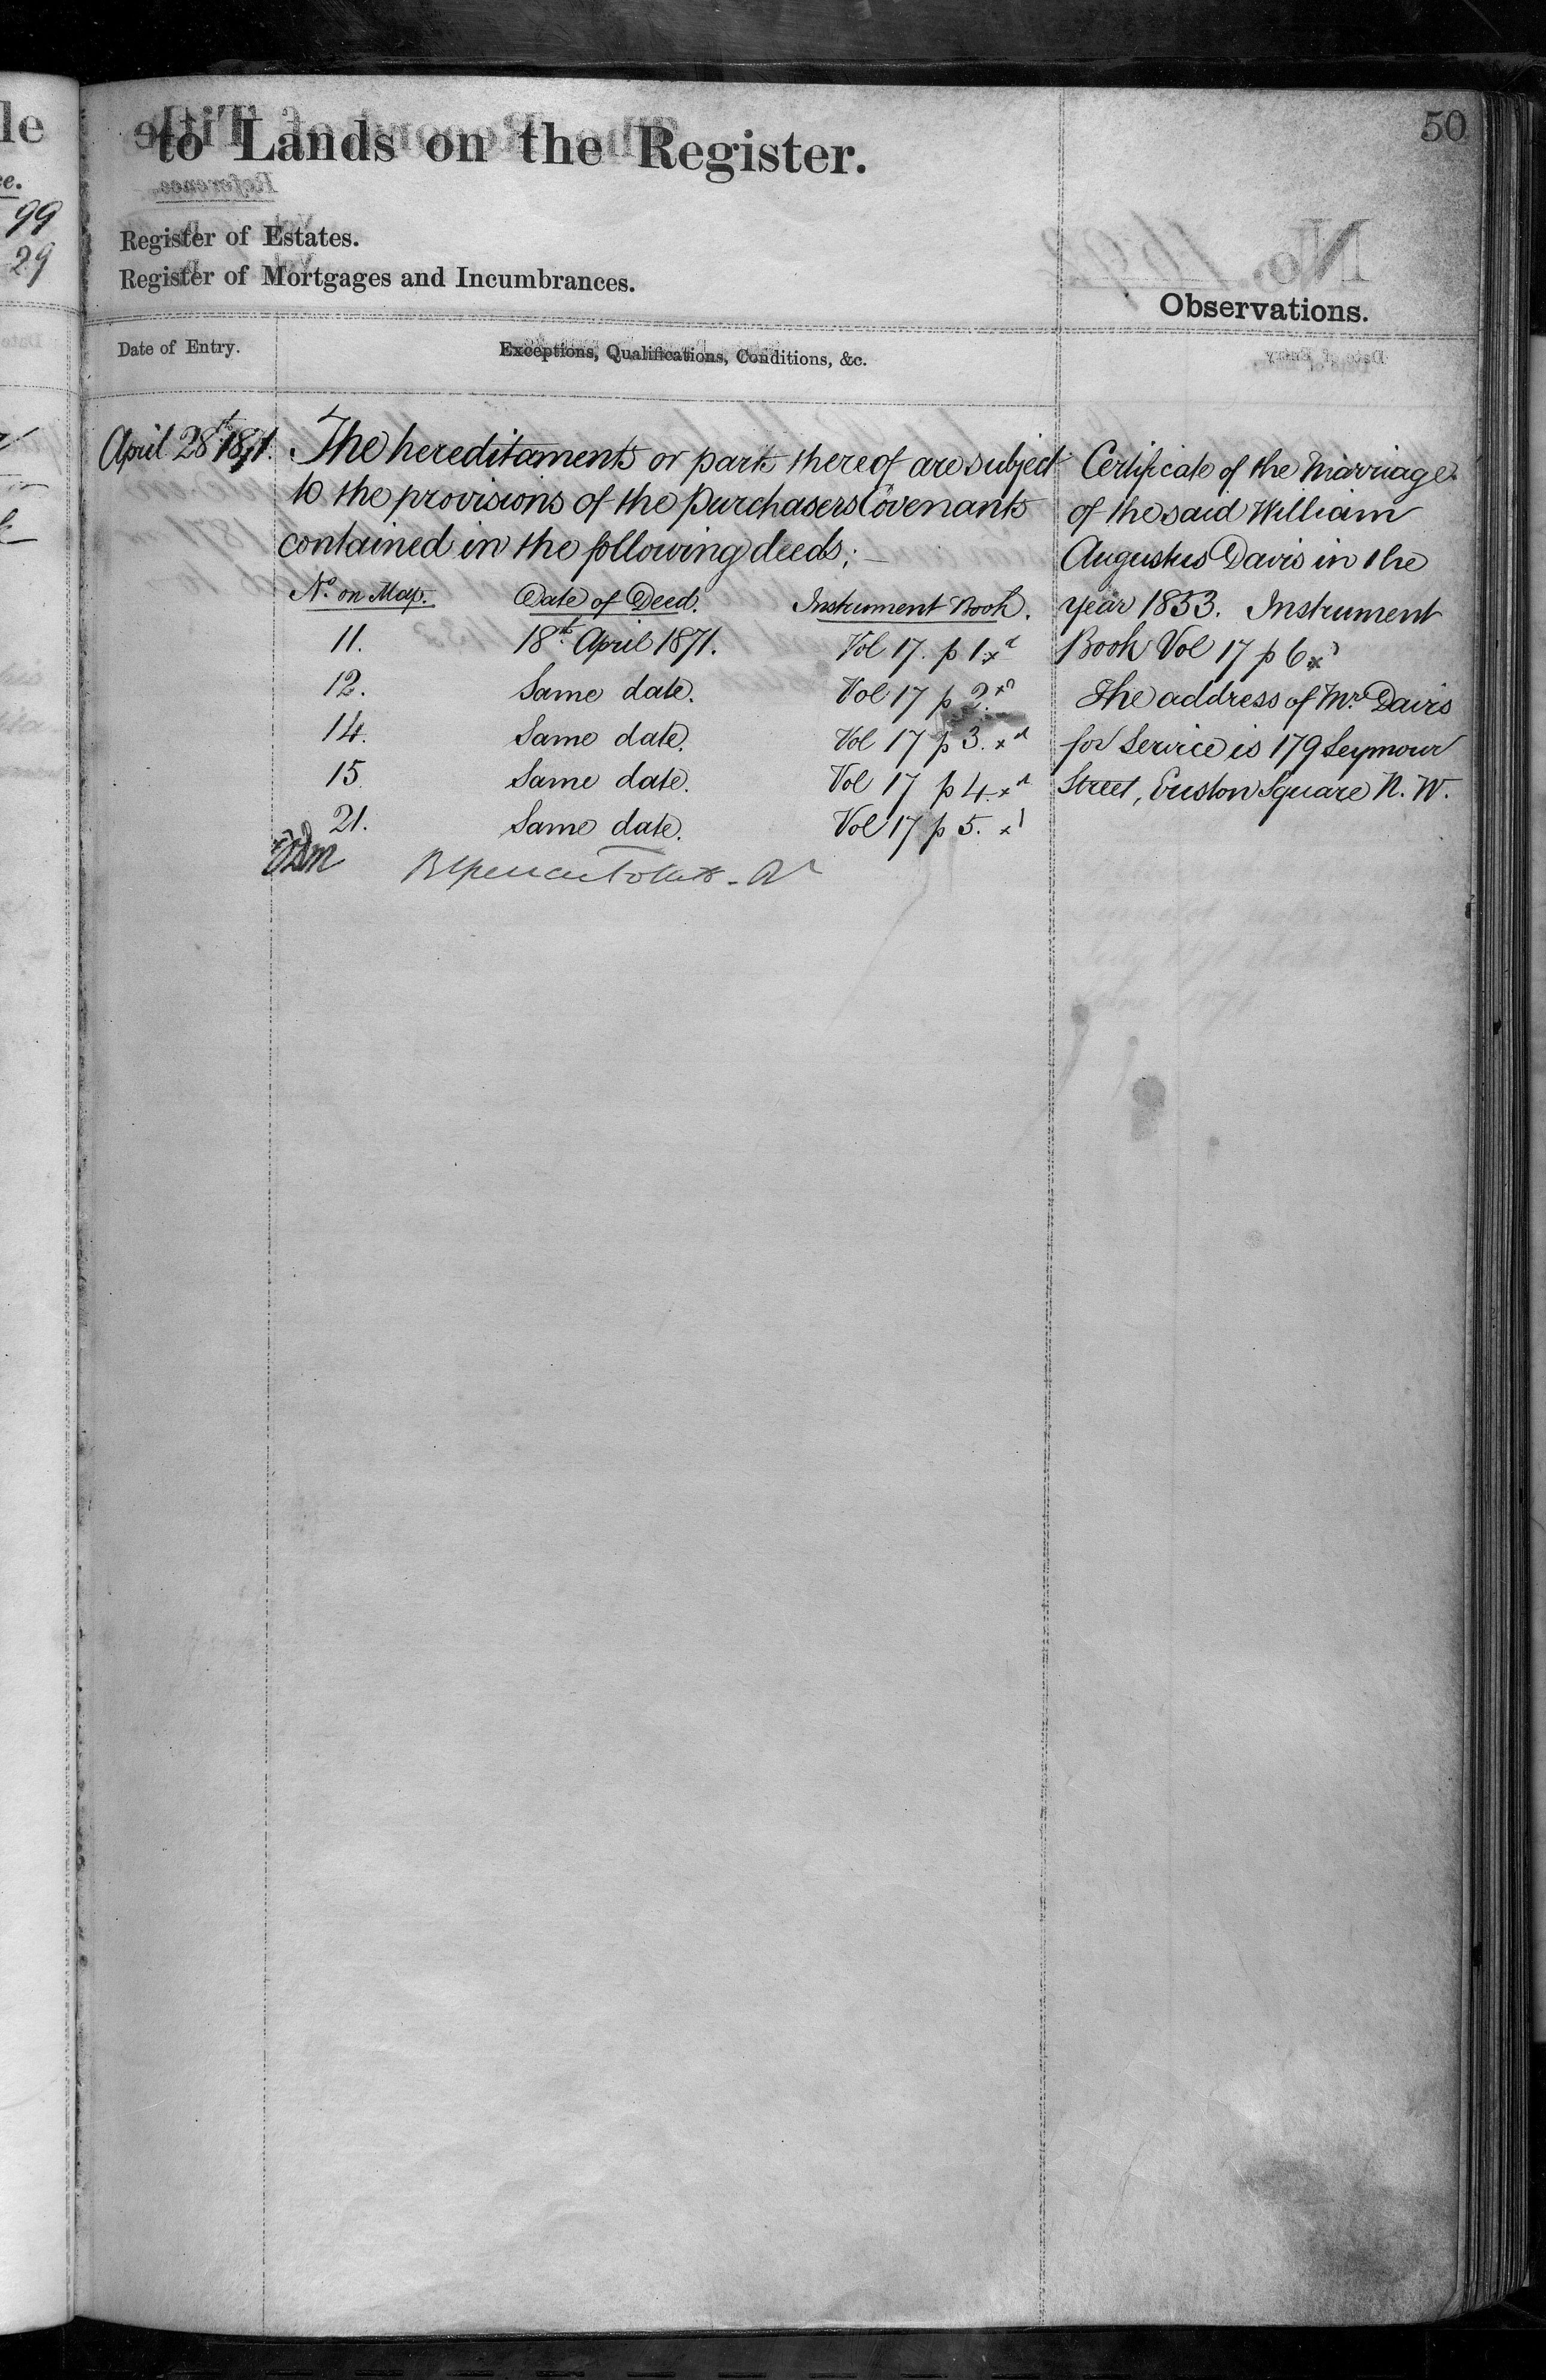 le
99
29
50
to Lands on the Register.
Register of Estates.
Register of Mortgages and Incumbrances.
Observations.
Date of Entry.
Exceptions, Qualifications, Conditions, &c.
April 28th 1871. The hereditaments or parts thereof are subject
to the provisions of the purchasers Covenants
contained in the following deeds; —
No. on Map. Date of Deed. Instrument Book.
11. 18th April 1871. Vol 17. p 1
12. Same date. Vol 17 p 2.
14. Same date. Vol 17 p 3.
15 Same date. Vol 17 p 4.
21. Same date. Vol 17 p 5.
Certificate of the Marriage
of the said William
Augustus Davis in the
year 1853. Instrument
Book Vol 17 p 6
The address of Mr Davis
for Service is 179 Seymour
Street, Euston Square N. W.